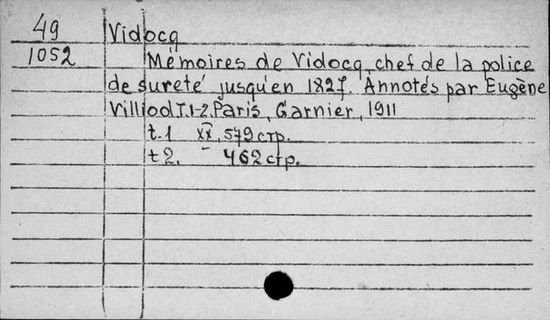 49 Vidocq
1052 Mémoires de Vidocq, chef de la police
de sureté jusqu'en 1827. Annotés par Eugène
Villiod T.1-2. Paris, Garnier, 1911
t.1 XX, 579 стр.
t 2. – 462 стр.